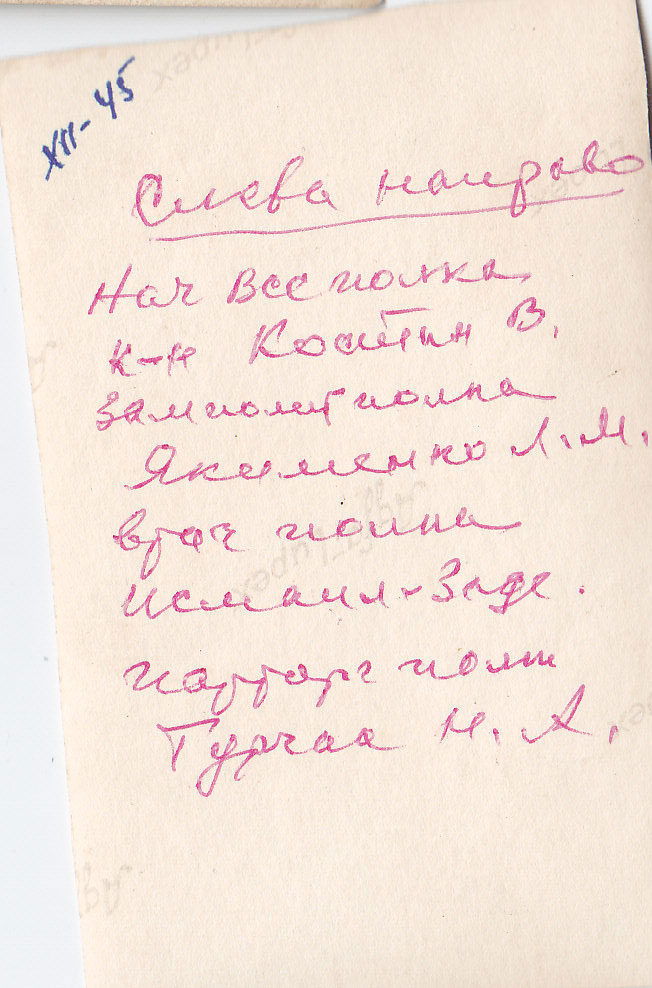 XII-45
Слева направо
Нач ВСС полка
к-н Костин В.
Замполит полка
Якименко Л.М.
врач полка
Исмаил-Заде.
парторг полка
Н. А.